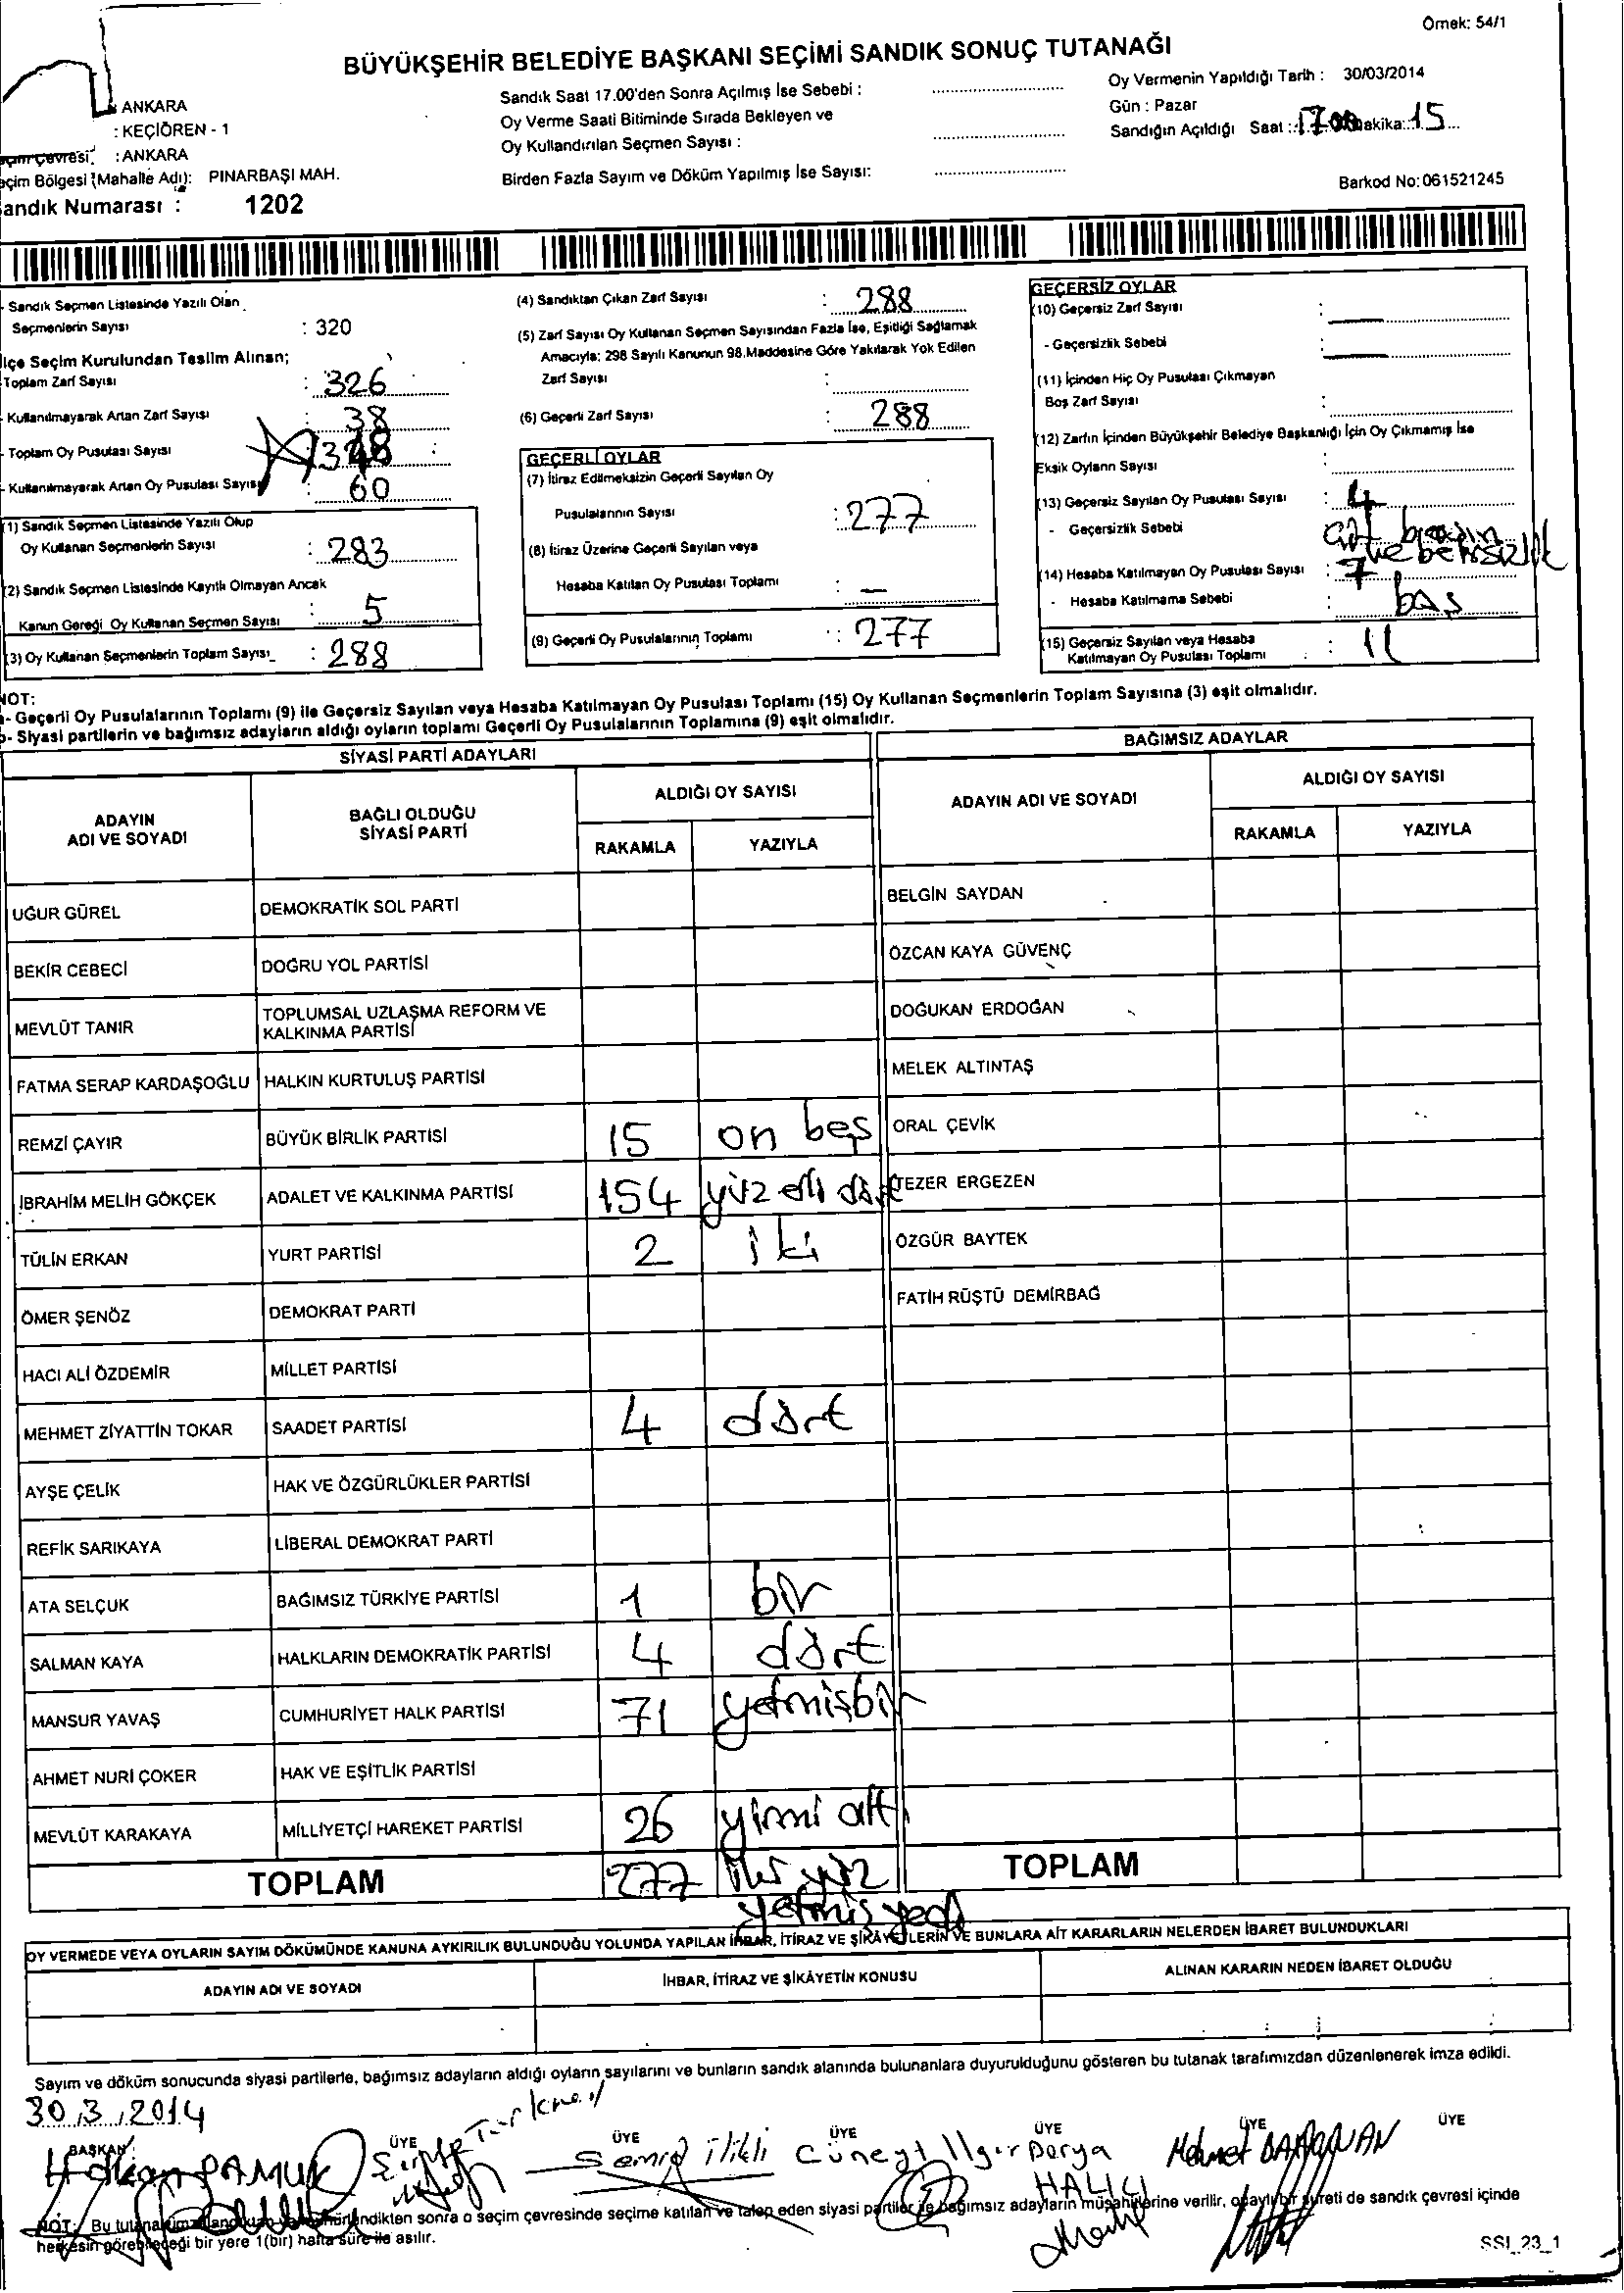 Örnek: 54/1
BÜYÜKŞEHİR BELEDİYE BAŞKANI SEÇİMİ SANDIK SONUÇ TUTANAĞI
: ANKARA
: KEÇİÖREN - 1
: ANKARA
eçim Bölgesi (Mahalle Adı): PINARBAŞI MAH.
andık Numarası : 1202
Sandık Saat 17.00'den Sonra Açılmış İse Sebebi :
Oy Verme Saati Bitiminde Sırada Bekleyen ve
Oy Kullandırılan Seçmen Sayısı :
Birden Fazla Sayım ve Döküm Yapılmış İse Sayısı:
Oy Vermenin Yapıldığı Tarih : 30/03/2014
Gün : Pazar
Sandığın Açıldığı Saat : 17.00 Dakika: 15
Barkod No: 061521245
- Sandık Seçmen Listesinde Yazılı Olan
Seçmenlerin Sayısı : 320
İlçe Seçim Kurulundan Teslim Alınan;
Toplam Zarf Sayısı : 326
- Kullanılmayarak Artan Zarf Sayısı : 38
- Toplam Oy Pusulası Sayısı : 348
- Kullanılmayarak Artan Oy Pusulası Sayısı : 60
(1) Sandık Seçmen Listesinde Yazılı Olup
Oy Kullanan Seçmenlerin Sayısı : 283
(2) Sandık Seçmen Listesinde Kayıtlı Olmayan Ancak
Kanun Gereği Oy Kullanan Seçmen Sayısı : 5
(3) Oy Kullanan Seçmenlerin Toplam Sayısı : 288
(4) Sandıktan Çıkan Zarf Sayısı : 288
(5) Zarf Sayısı Oy Kullanan Seçmen Sayısından Fazla İse, Eşitliği Sağlamak
Amacıyla: 298 Sayılı Kanunun 98.Maddesine Göre Yakılarak Yok Edilen
Zarf Sayısı :
(6) Geçerli Zarf Sayısı : 288
GEÇERLİ OYLAR
(7) İtiraz Edilmeksizin Geçerli Sayılan Oy
Pusulalarının Sayısı : 277
(8) İtiraz Üzerine Geçerli Sayılan veya
Hesaba Katılan Oy Pusulası Toplamı : -
(9) Geçerli Oy Pusulalarının Toplamı : 277
GEÇERSİZ OYLAR
(10) Geçersiz Zarf Sayısı :
- Geçersizlik Sebebi :
(11) İçinden Hiç Oy Pusulası Çıkmayan
Boş Zarf Sayısı :
(12) Zarfın İçinden Büyükşehir Belediye Başkanlığı İçin Oy Çıkmamış İse
Eksik Oyların Sayısı :
(13) Geçersiz Sayılan Oy Pusulası Sayısı : 4
- Geçersizlik Sebebi
(14) Hesaba Katılmayan Oy Pusulası Sayısı : 7
- Hesaba Katılmama Sebebi : boş
(15) Geçersiz Sayılan veya Hesaba
Katılmayan Oy Pusulası Toplamı : 11
NOT:
a- Geçerli Oy Pusulalarının Toplamı (9) ile Geçersiz Sayılan veya Hesaba Katılmayan Oy Pusulası Toplamı (15) Oy Kullanan Seçmenlerin Toplam Sayısına (3) eşit olmalıdır.
b- Siyasi partilerin ve bağımsız adayların aldığı oyların toplamı Geçerli Oy Pusulalarının Toplamına (9) eşit olmalıdır.
SİYASİ PARTİ ADAYLARI
BAĞIMSIZ ADAYLAR
ADAYIN
ADI VE SOYADI
BAĞLI OLDUĞU
SİYASİ PARTİ
ALDIĞI OY SAYISI
RAKAMLA YAZIYLA
ADAYIN ADI VE SOYADI
ALDIĞI OY SAYISI
RAKAMLA YAZIYLA
UĞUR GÜREL DEMOKRATİK SOL PARTİ BELGİN SAYDAN
BEKİR CEBECİ DOĞRU YOL PARTİSİ ÖZCAN KAYA GÜVENÇ
MEVLÜT TANIR TOPLUMSAL UZLAŞMA REFORM VE KALKINMA PARTİSİ DOĞUKAN ERDOĞAN
FATMA SERAP KARDAŞOĞLU HALKIN KURTULUŞ PARTİSİ MELEK ALTINTAŞ
REMZİ ÇAYIR BÜYÜK BİRLİK PARTİSİ 15 on beş ORAL ÇEVİK
İBRAHİM MELİH GÖKÇEK ADALET VE KALKINMA PARTİSİ 154 yüz elli dört TEZER ERGEZEN
TÜLİN ERKAN YURT PARTİSİ 2 iki ÖZGÜR BAYTEK
ÖMER ŞENÖZ DEMOKRAT PARTİ FATİH RÜŞTÜ DEMİRBAĞ
HACI ALİ ÖZDEMİR MİLLET PARTİSİ
MEHMET ZİYATTİN TOKAR SAADET PARTİSİ 4 dört
AYŞE ÇELİK HAK VE ÖZGÜRLÜKLER PARTİSİ
REFİK SARIKAYA LİBERAL DEMOKRAT PARTİ
ATA SELÇUK BAĞIMSIZ TÜRKİYE PARTİSİ 1 bir
SALMAN KAYA HALKLARIN DEMOKRATİK PARTİSİ 4 dört
MANSUR YAVAŞ CUMHURİYET HALK PARTİSİ 71 yetmişbir
AHMET NURİ ÇOKER HAK VE EŞİTLİK PARTİSİ
MEVLÜT KARAKAYA MİLLİYETÇİ HAREKET PARTİSİ 26 yirmi altı
TOPLAM 277 iki yüz yetmiş yedi TOPLAM
OY VERMEDE VEYA OYLARIN SAYIM DÖKÜMÜNDE KANUNA AYKIRILIK BULUNDUĞU YOLUNDA YAPILAN İHBAR, İTİRAZ VE ŞİKÂYETLERİN VE BUNLARA AİT KARARLARIN NELERDEN İBARET BULUNDUKLARI
ADAYIN ADI VE SOYADI İHBAR, İTİRAZ VE ŞİKÂYETİN KONUSU ALINAN KARARIN NEDEN İBARET OLDUĞU
Sayım ve döküm sonucunda siyasi partilerle, bağımsız adayların aldığı oyların sayılarını ve bunların sandık alanında bulunanlara duyurulduğunu gösteren bu tutanak tarafımızdan düzenlenerek imza edildi.
30.3.2014
BAŞKAN ÜYE ÜYE ÜYE ÜYE ÜYE ÜYE
Hakan PAMUK Türkmen Semra İlikli Cüneyt Ilgır Derya HALICI Mehmet
NOT: Bu tutanak sonra o seçim çevresinde seçime katılan ve talep eden siyasi partiler ile bağımsız adayların müşahitlerine verilir, onaylı bir sureti de sandık çevresi içinde
herkesin görebileceği bir yere 1(bir) hafta süre ile asılır.
SSI_23_1